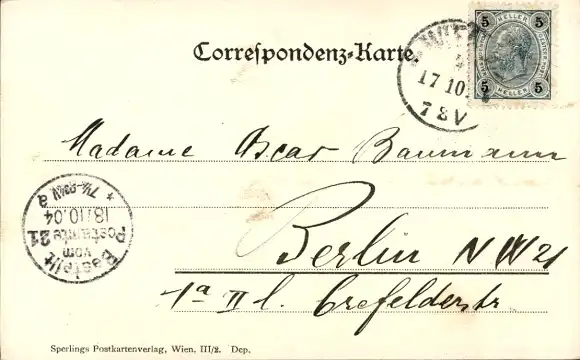 Correspondenz-Karte.
5 HELLER 5
5 HELLER 5
17 10
7 8V
Madame Oscar Baumann
Berlin NW 21
1a II l. Crefelderstr
Bestellt
vom
Postamte 21
18/10.04
7½-9¼V.
* a
Sperlings Postkartenverlag, Wien, III/2. Dep.